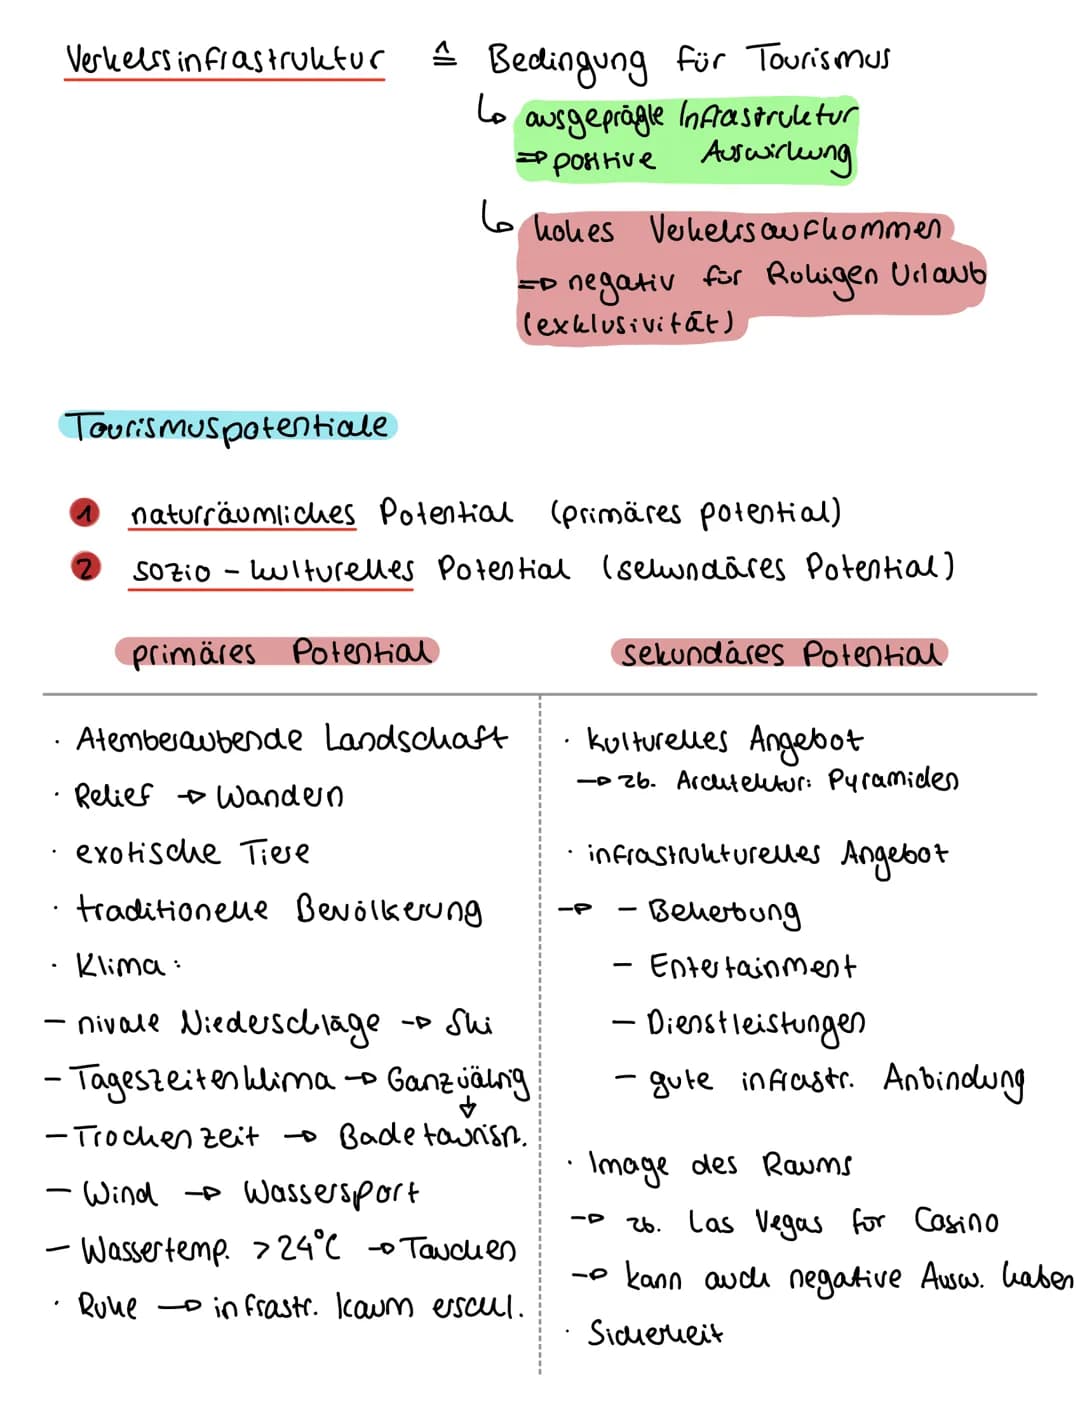 Verkehrsinfrastruktur ≙ Bedingung für Tourismus
↳ ausgeprägte Infrastruktur
⇒ positive Auswirkung
↳ hohes Verkehrsaufkommen
⇒ negativ für Ruhigen Urlaub
(exklusivität)
Tourismuspotentiale
1 naturräumliches Potential (primäres potential)
2 sozio-kulturelles Potential (sekundäres Potential)
primäres Potential
· Atemberaubende Landschaft
· Relief → Wandern
· exotische Tiere
· traditionelle Bevölkerung
· Klima:
- nivale Niederschläge → Ski
- Tageszeitenklima → Ganzjährig
↓
- Trockenzeit → Badetourism.
- Wind → Wassersport
- Wassertemp. >24°C → Tauchen
· Ruhe → infrastr. kaum erschl.
sekundäres Potential
· kulturelles Angebot
→ zb. Architektur: Pyramiden
· infrastrukturelles Angebot
→ - Beherbung
- Entertainment
- Dienstleistungen
- gute infrastr. Anbindung
· Image des Raums
→ zb. Las Vegas für Casino
→ kann auch negative Ausw. haben
· Sicherheit